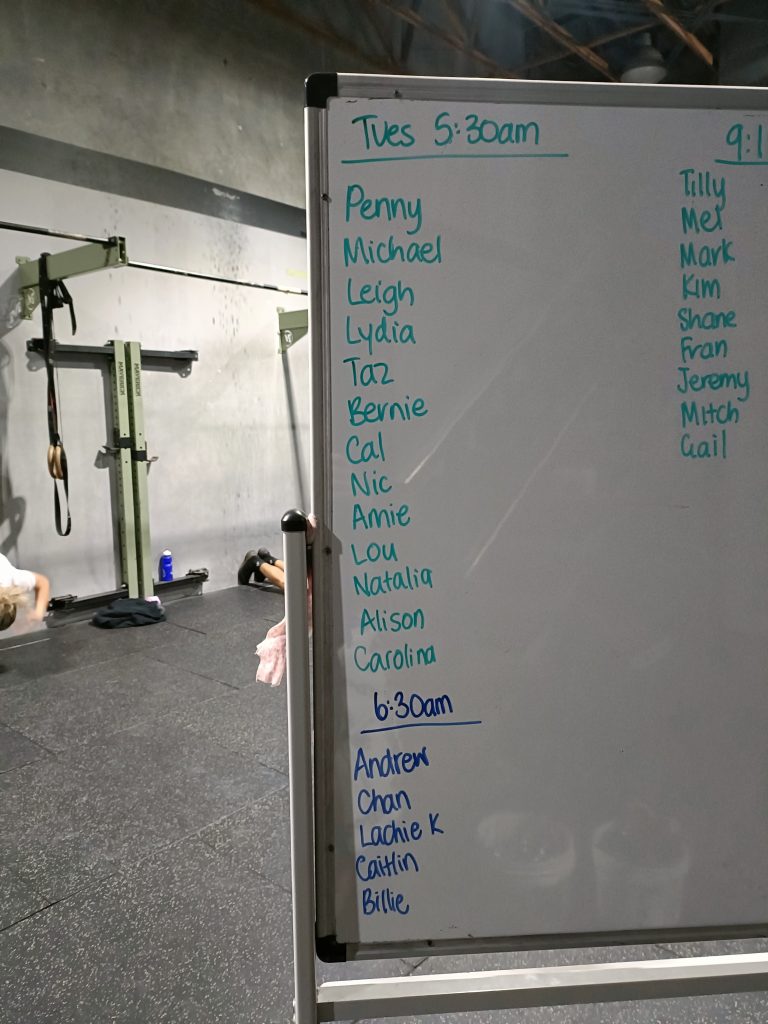 Tues 5:30am
Penny
Michael
Leigh
Lydia
Taz
Bernie
Cal
Nic
Amie
Lou
Natalia
Alison
Carolina
6:30am
Andrew
Chan
Lachie K
Caitlin
Billie
9:1
Tilly
Mel
Mark
Kim
Shane
Fran
Jeremy
Mitch
Gail
MAVERICK
MAVERICK